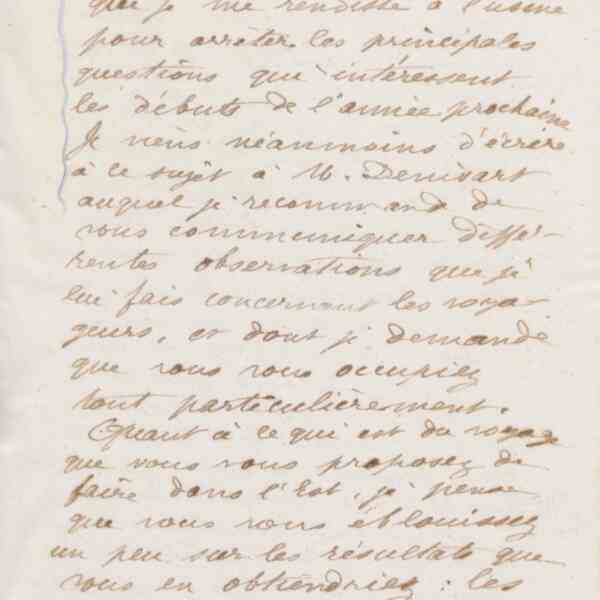 que je me rendisse à l'usine
pour arrêter les principales
questions qui intéressent
les débuts de l'année prochaine
Je viens néanmoins d'écrire
à ce sujet à M. Denisart
auquel je recommande de
vous communiquer diffé-
rentes observations que je
lui fais concernant les voya-
geurs, et dont je demande
que vous vous occupiez
tout particulièrement.
Quant à ce qui est du voyage
que vous vous proposez de
faire dans l'Est, je pense
que vous vous éblouissez
un peu sur les résultats que
vous en obtiendriez : les